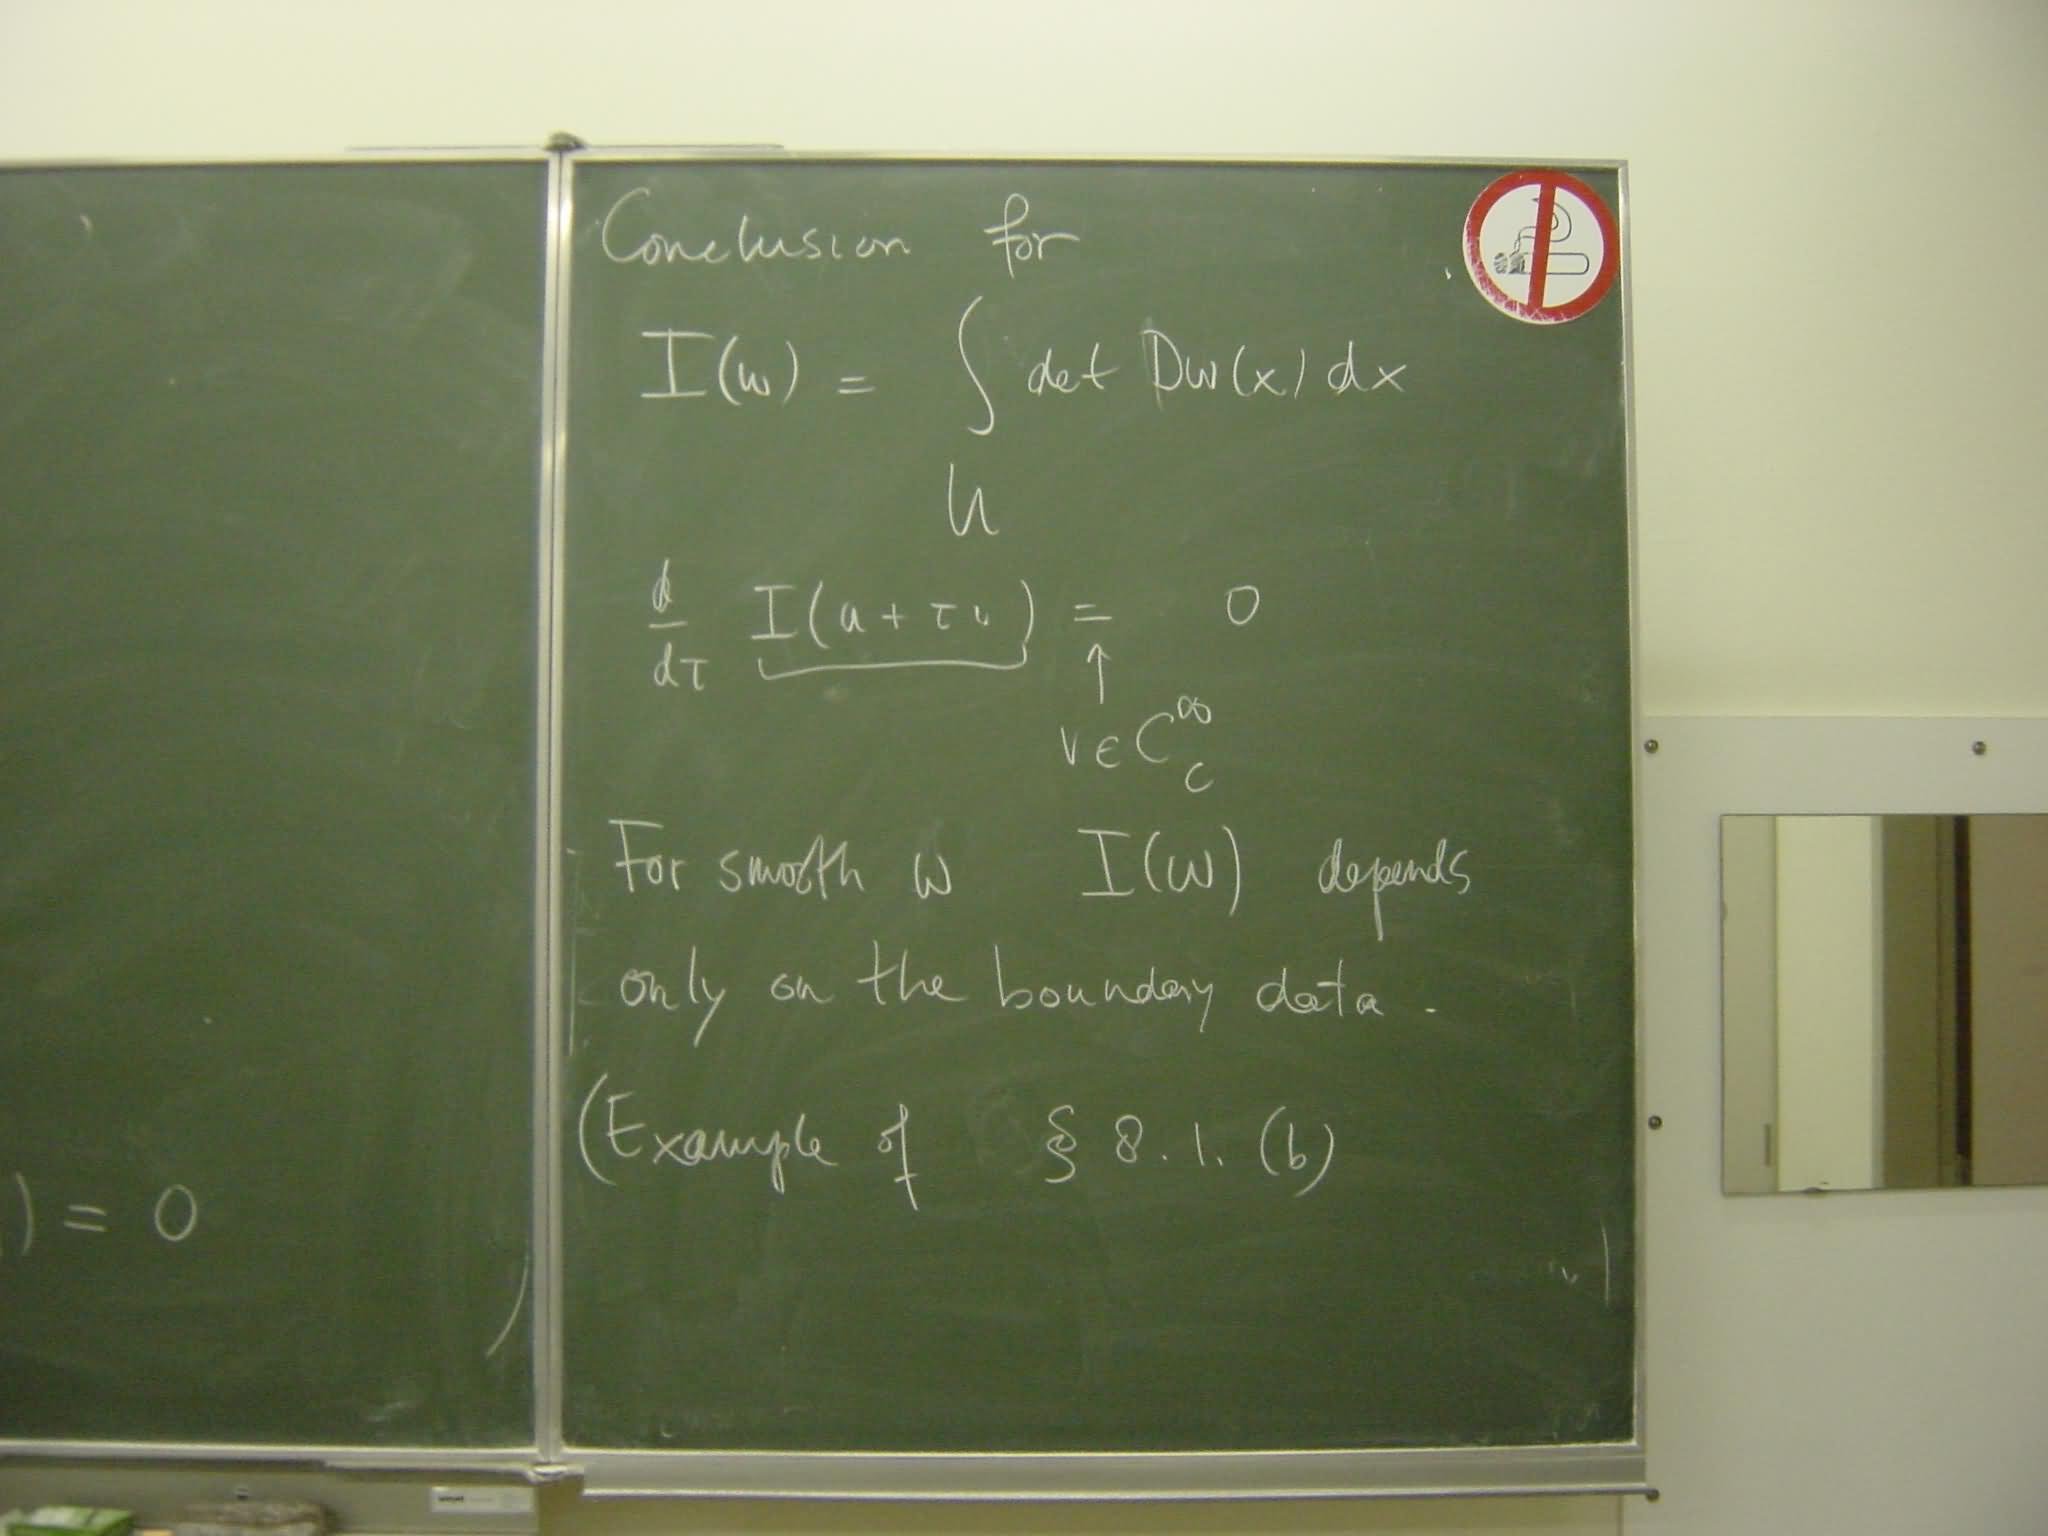 Conclusion for
I(w) = ∫ det Dw(x) dx
U
d/dτ I(u + τv) = 0
↑
v ∈ C_c^∞
For smooth w I(w) depends
only on the boundary data.
(Example of § 8.1. (b)
) = 0